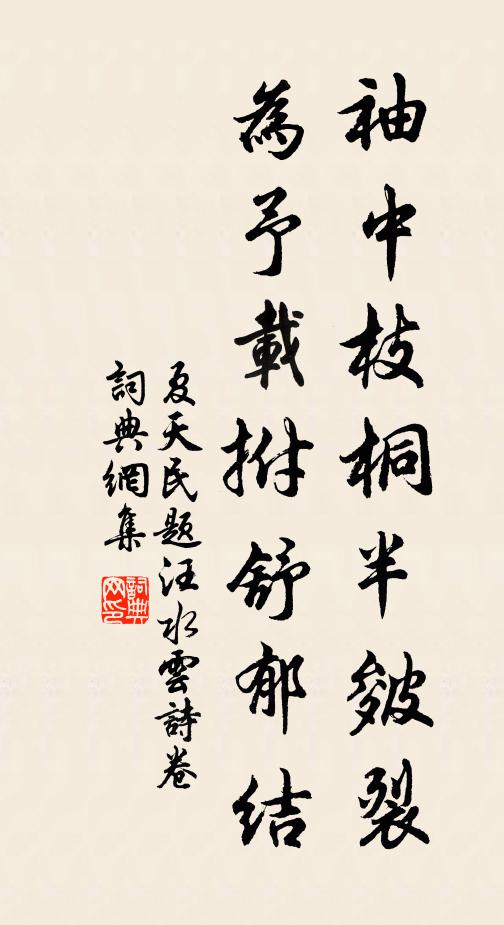 袖中枝桐半皴裂
為予載拊舒郁结
夏天民題汪水雲詩卷
詞典網集
詞典
网印